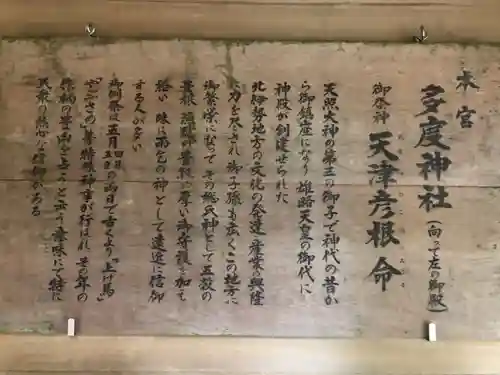 本宮
多度神社（向って左の御殿）
御祭神 天津彦根命
天照大神の第三の御子で神代の昔か
ら御鎮座になり 雄略天皇の御代に
神殿が創建せられた
北伊勢地方の文化の発達 産業の興隆
に力を尽され 御子孫も広くこの地方に
御繁栄になって その総氏神として 五穀の
豊穣 諸難の守護に厚い御守護を加え
給い 殊に雨乞の神として遠近に信仰
する人が多い
御例祭は五月四日五日の両日で古くより「上げ馬」
「やぶさめ」の特殊神事が行はれ その年の
作物の豊凶を占うと云う意味にて特に
農家の熱心な信仰がある